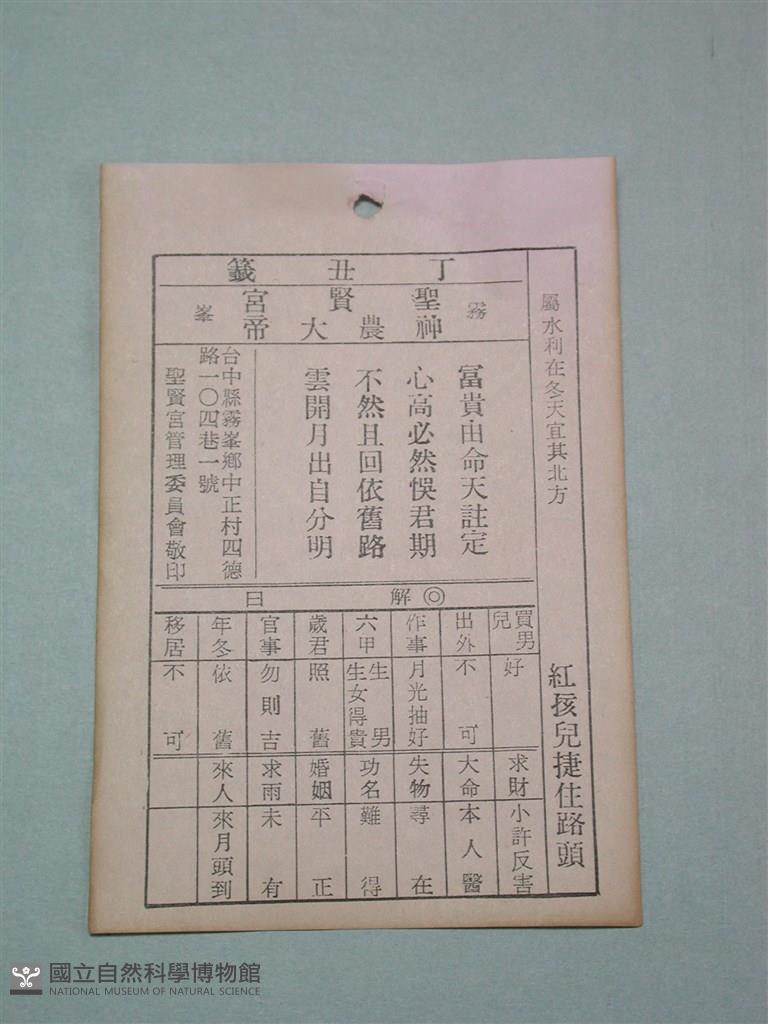 屬水利在冬天宜其北方
紅孩兒捷住路頭
丁丑籤
霧
聖賢宮
神農大帝
峯
富貴由命天註定
心高必然悞君期
不然且回依舊路
雲開月出自分明
台中縣霧峯鄉中正村四德
路一〇四巷一號
聖賢宮管理委員會敬印
◎解曰
買男兒 好
出外 不可
作事 月光抽好
六甲 生男生女得貴
歲君 照舊
官事 勿則吉
年冬 依舊
移居 不可
求財 小許反害
大命 本人醫
失物 尋在
功名 難得
婚姻 平正
求雨 未有
來人 來月頭到
國立自然科學博物館
NATIONAL MUSEUM OF NATURAL SCIENCE